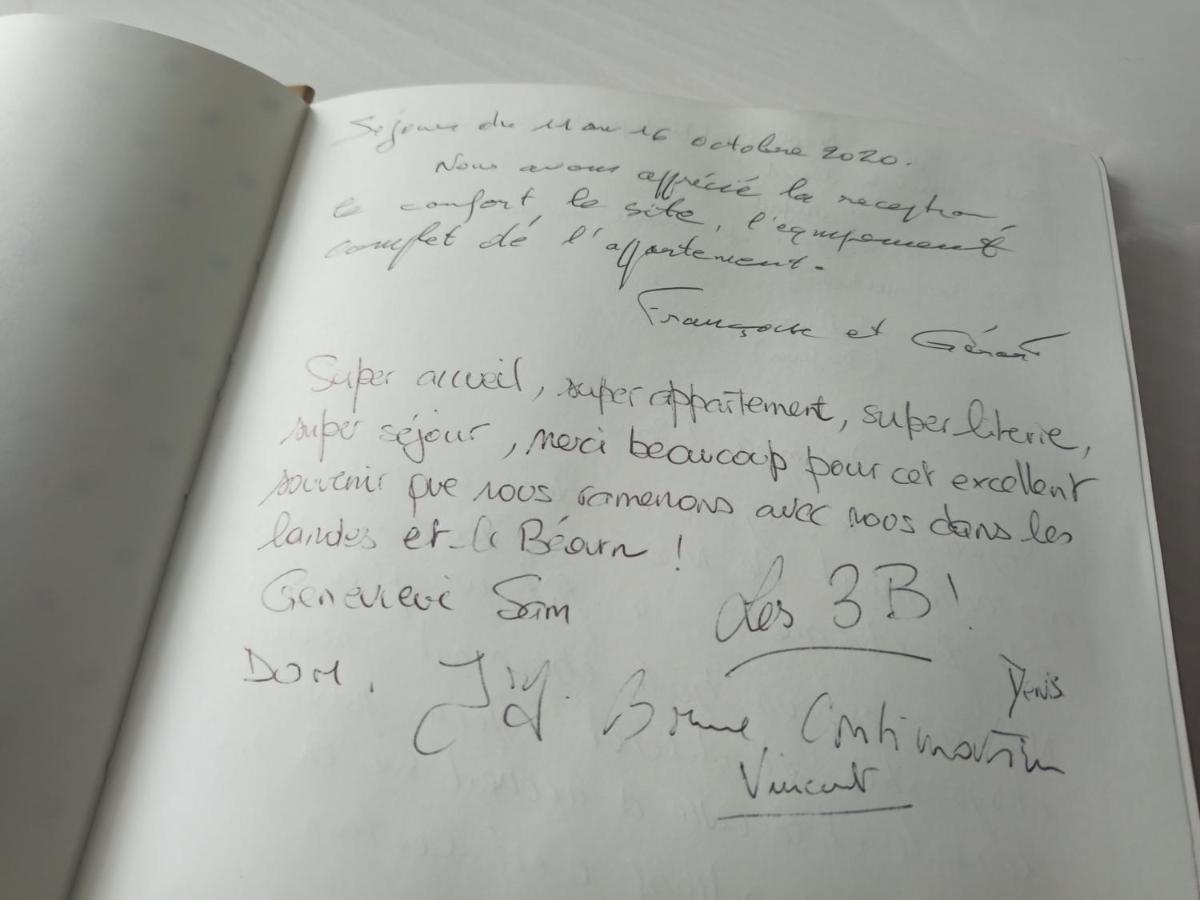 Séjour du 11 au 16 octobre 2020.
Nous avons apprécié la reception,
le confort le site, l'equipement
complet dé l'appartement.
Françoise et Gérard
Super accueil, super appartement, super literie,
super séjour, merci beaucoup pour cet excellent
souvenir que nous ramenons avec nous dans les
landes et le Béarn !
Genevieve
Les 3B !
DOM.
Denis
Bonne Continuation
Vincent